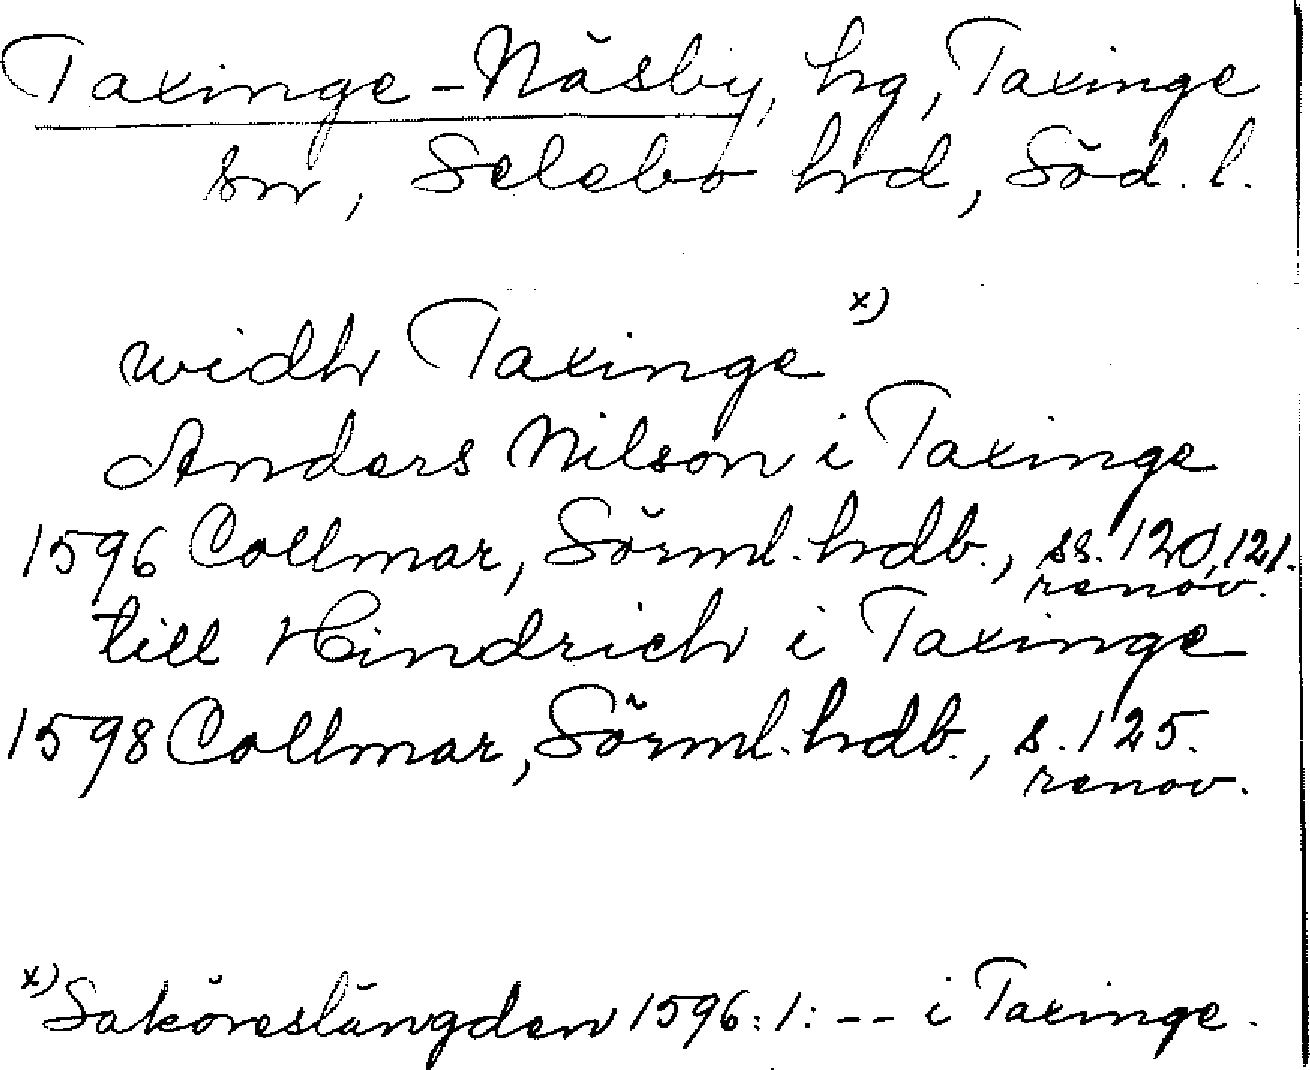 Taxinge-Näsby, hg, Taxinge
sn, Selebo hd, Söd. l.
widh Taxinge x)
Anders Nilson i Taxinge
1596 Collmar, Sörml. hdb., ss. 120, 121.
renov.
till Hindrich i Taxinge
1598 Collmar, Sörml. hdb., s. 125.
renov.
x) Saköreslängden 1596: 1: -- i Taxinge.